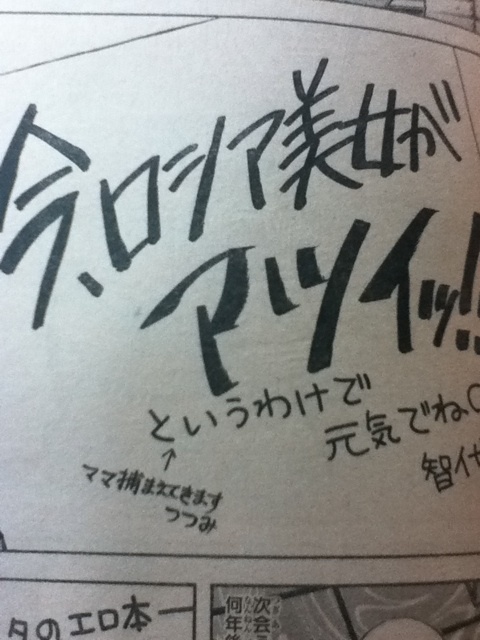 今、ロシア美女が
アツイッ!!
というわけで
元気でね
智代
↑
ママ捕まえてきます
つつみ
タのエロ本
次会
何年後